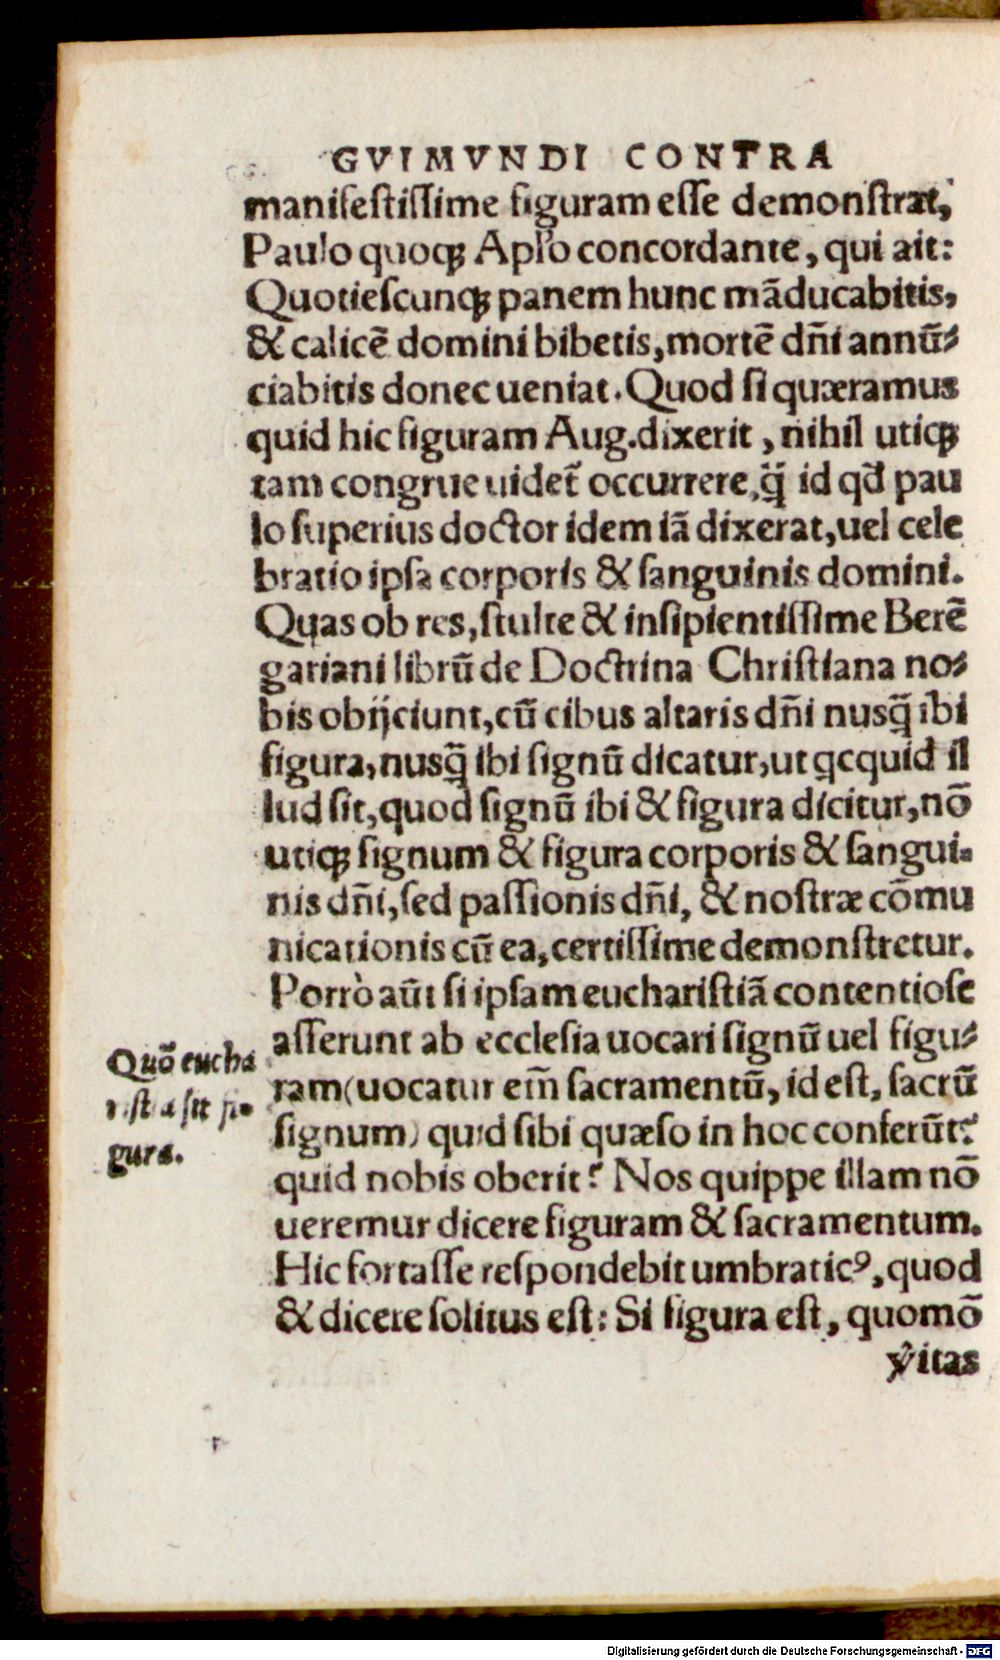 GVIMVNDI CONTRA
manifestissime figuram esse demonstrat,
Paulo quoqꝫ Apło concordante, qui ait:
Quotiescunqꝫ panem hunc mãducabitis,
& calicẽ domini bibetis, mortẽ dñi annũ-
ciabitis donec ueniat. Quod si quæramus
quid hic figuram Aug. dixerit, nihil utiqꝫ
tam congrue uidet̃ occurrere, q̈̃ id qđ pau
lo superius doctor idem iã dixerat, uel cele
bratio ipsa corporis & sanguinis domini.
Quas ob res, stulte & insipientissime Berẽ
gariani librũ de Doctrina Christiana no-
bis obijciunt, cũ cibus altaris dñi nusq̃ ibi
figura, nusq̃ ibi signũ dicatur, ut qcquid il
lud sit, quod signũ ibi & figura dicitur, nõ
utiqꝫ signum & figura corporis & sangui-
nis dñi, sed passionis dñi, & nostræ cõmu
nicationis cũ ea, certissime demonstretur.
Porrò aũt si ipsam eucharistiã contentiose
asserunt ab ecclesia uocari signũ uel figu-
ram (uocatur em̃ sacramentũ, id est, sacrũ
signum) quid sibi quæso in hoc conferũt?
quid nobis oberit? Nos quippe illam nõ
ueremur dicere figuram & sacramentum.
Hic fortasse respondebit umbraticꝰ, quod
& dicere solitus est: Si figura est, quomõ
v̓itas
Quõ eucha
ristia sit fi-
gura.
Digitalisierung gefördert durch die Deutsche Forschungsgemeinschaft - DFG